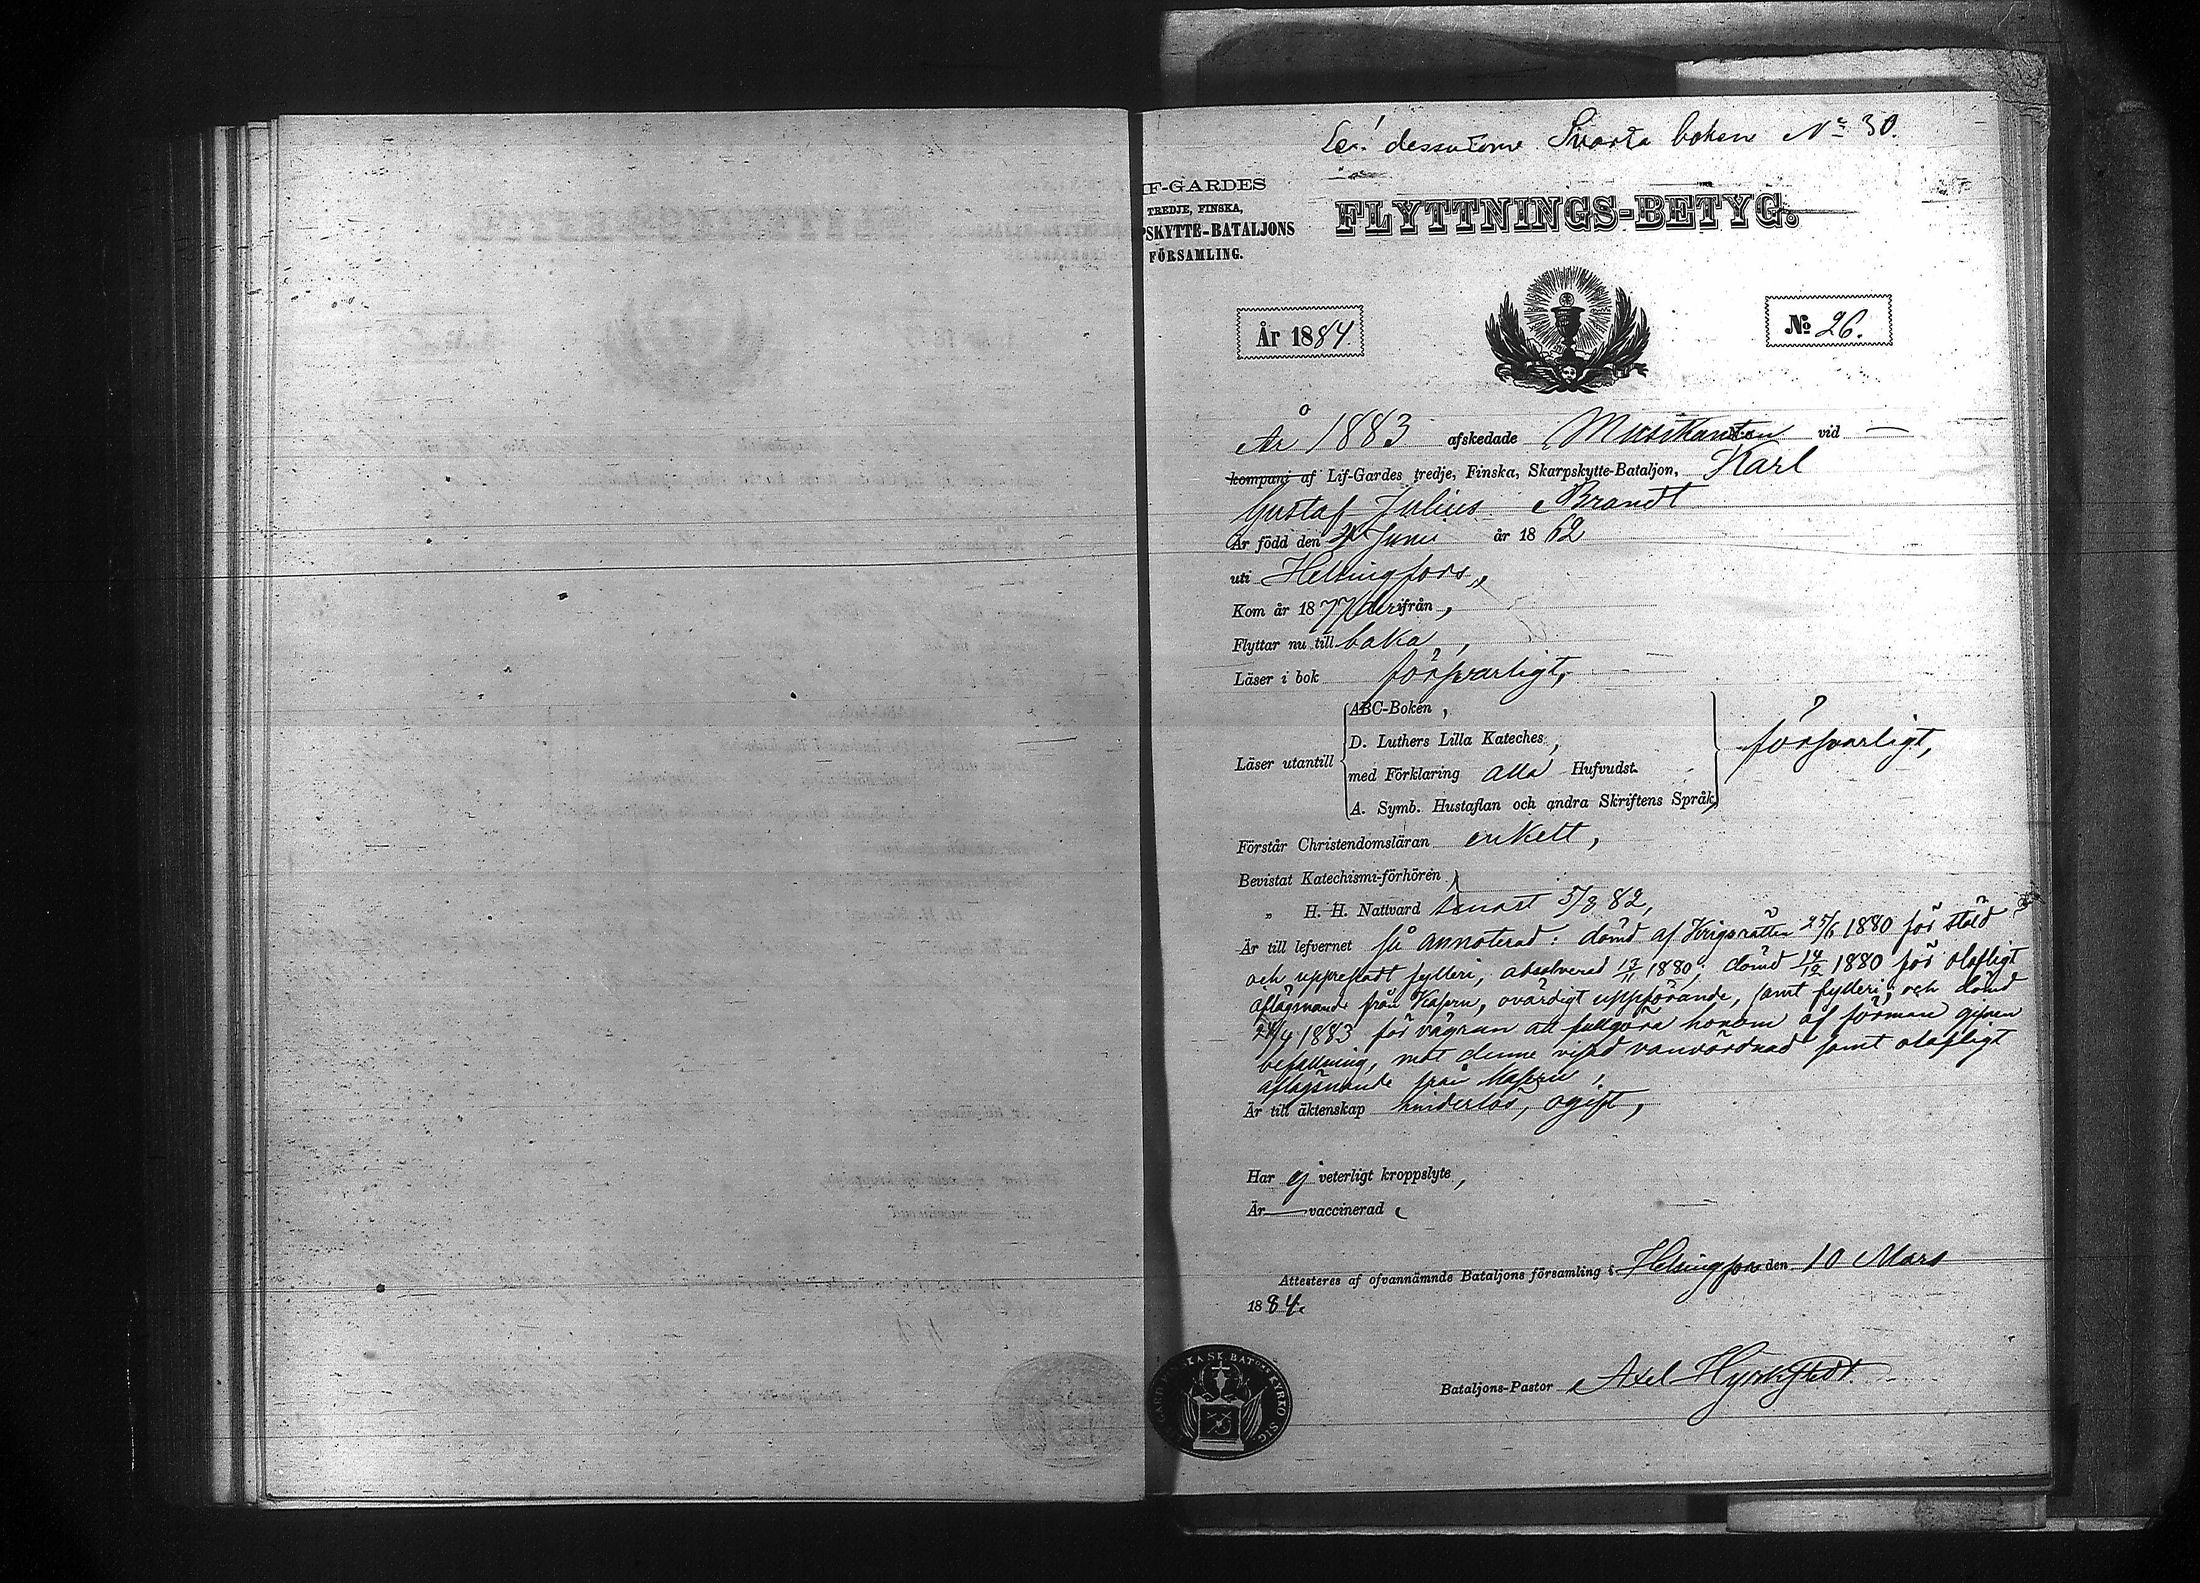 Se! dessutom Svarta boken No 30.
IF-GARDES
TREDJE, FINSKA,
PSKYTTE-BATALJONS
FÖRSAMLING.
FLYTTNINGS-BETYG.
År 1884.
No 26.
År 1883 afskedade Musikanten vid —
kompani af Lif-Gardes tredje, Finska, Skarpskytte-Bataljon, Karl
Gustaf Julius Brandt
Är född den Juni år 1862
uti Helsingfors,
Kom år 1877 derifrån,
Flyttar nu tillbaka,
Läser i bok försvarligt,
ABC-Boken,
D. Luthers Lilla Kateches,
Läser utantill
med Förklaring alla Hufvudst.
försvarligt,
A. Symb. Hustaflan och andra Skriftens Språk,
Förstår Christendomsläran enkelt,
Bevistat Katechismi-förhören
„ H. H. Nattvard senast 5/3 82,
Är till lefvernet så annoterad: dömd af Krigsrätten 25/6 1880 för stöld
och upprepadt fylleri, absolverad 17/11 1880; dömd 14/12 1880 för olofligt
aflägsnande från Kasern, ovärdigt uppförande, samt fylleri; och dömd
24/4 1883 för vägran att fullgöra honom af förman gifven
befallning, mot denne visad vanvördnad samt olofligt
aflägsnande från Kasern,
Är till äktenskap hinderlös, ogift,
Har ej veterligt kroppslyte,
Är — vaccinerad
Attesteras af ofvannämnde Bataljons församling i Helsingfors den 10 Mars
1884.
SK. BAT:NS KYRKO SIG.
Bataljons-Pastor Axel Hyrkstedt.